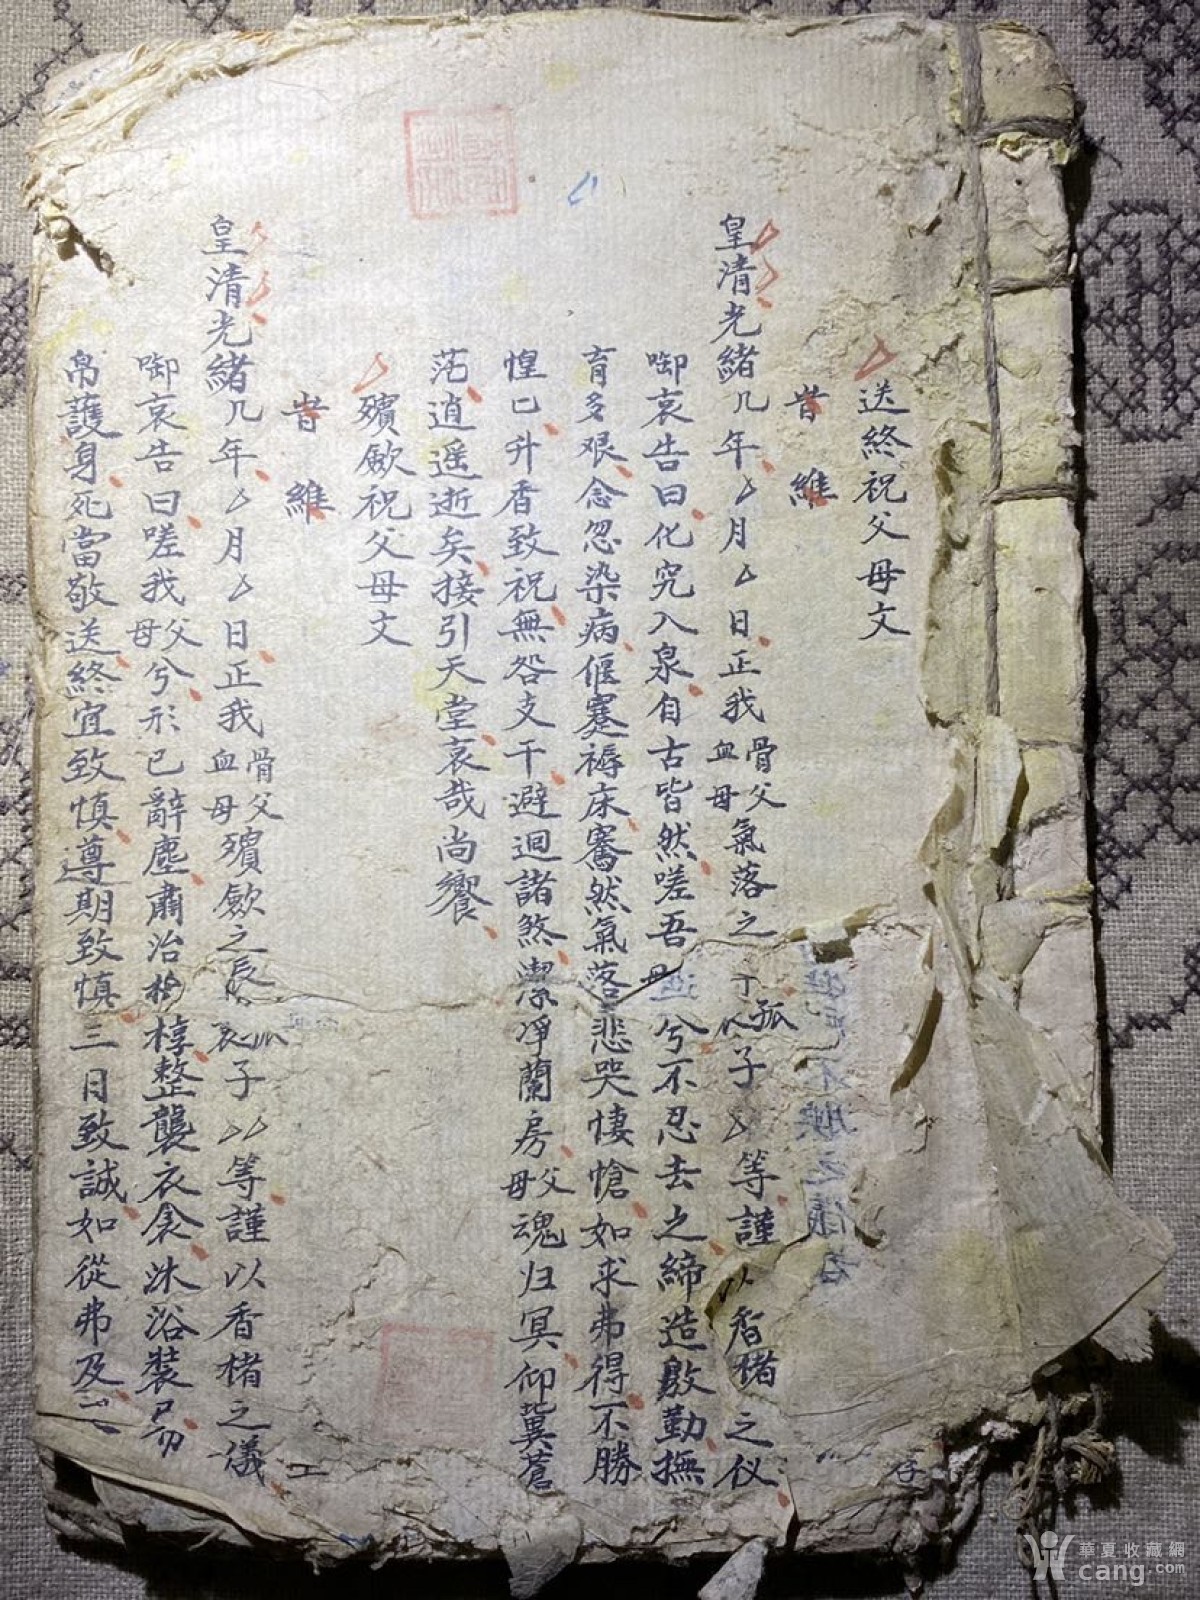 送終祝父母文
昔維
皇清光緒几年厶月厶日正我骨父血母氣落之 丁孤子厶等謹以香楮之仪
啣哀告曰化究入泉自古皆然嗟吾母兮不忍去之締造殷勤撫
育多艱念忽染病偃蹇褥床騫然氣落悲哭悽愴如求弗得不勝
惶已升香致祝無咎支干避迴諸煞潔净蘭房父母魂归冥仰冀蒼
茫逍遥逝矣接引天堂哀哉尚饗
殯歛祝父母文
昔維
皇清光緒几年厶月厶日正我骨父血母殯歛之辰 哀子厶厶等謹以香楮之儀
啣哀告曰嗟我父母兮形已辭塵肅治桚椁整襲衣衾沐浴裝
帛護身死當敬送終宜致慎遵期致慎三日致誠如從弗及
華夏收藏網
cang.com